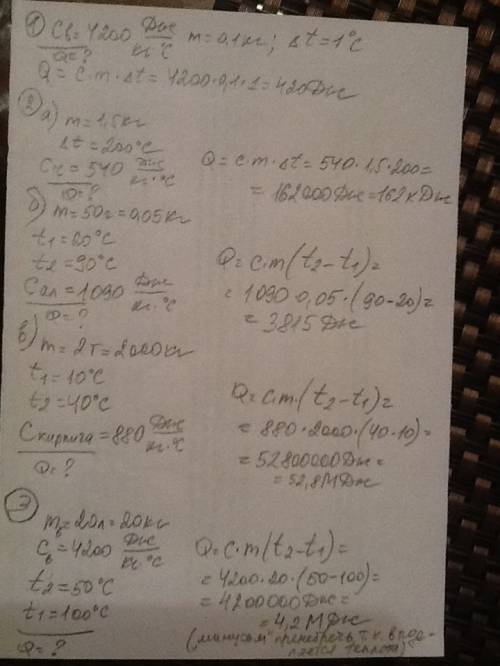 ① Cв = 4200 Дж/кг·°C m = 0,1 кг; Δt = 1°C
Q = ?
Q = c·m·Δt = 4200·0,1·1 = 420 Дж
② а) m = 1,5 кг
Δt = 200°C
Cч = 540 Дж/кг·°C
Q = ?
Q = c·m·Δt = 540·1,5·200 =
= 162000 Дж = 162 кДж
б) m = 50г = 0,05 кг
t1 = 20°C
t2 = 90°C
Cал = 1090 Дж/кг·°C
Q = ?
Q = c·m(t2 - t1) =
= 1090·0,05·(90-20) =
= 3815 Дж
в)
m = 2т = 2000 кг
t1 = 10°C
t2 = 40°C
Cкирпича = 880 Дж/кг·°C
Q = ?
Q = c·m·(t2 - t1) =
= 880·2000·(40·10) =
= 52800000 Дж =
= 52,8 МДж
③
mв = 20л = 20 кг
Cв = 4200 Дж/кг·°C
t2 = 50°C
t1 = 100°C
Q = ?
Q = c·m(t2 - t1) =
= 4200·20·(50-100) =
= 4200000 Дж =
= 4,2 МДж
("минусом" пренебречь, т.к. выде-
ляется теплота)